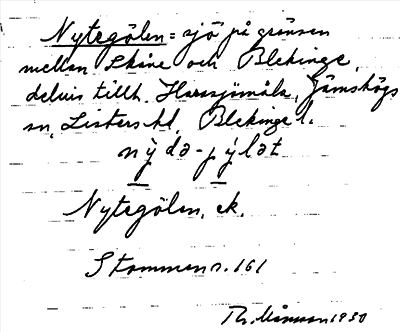 Nytegölen = sjö på gränsen
mellan Skåne och Blekinge,
delvis tillh. Harasjömåla, Jämshögs
sn, Listers hd, Blekinge l.
Nytegölen, ek.
Stommen n. 161
Th. Månsson 1930